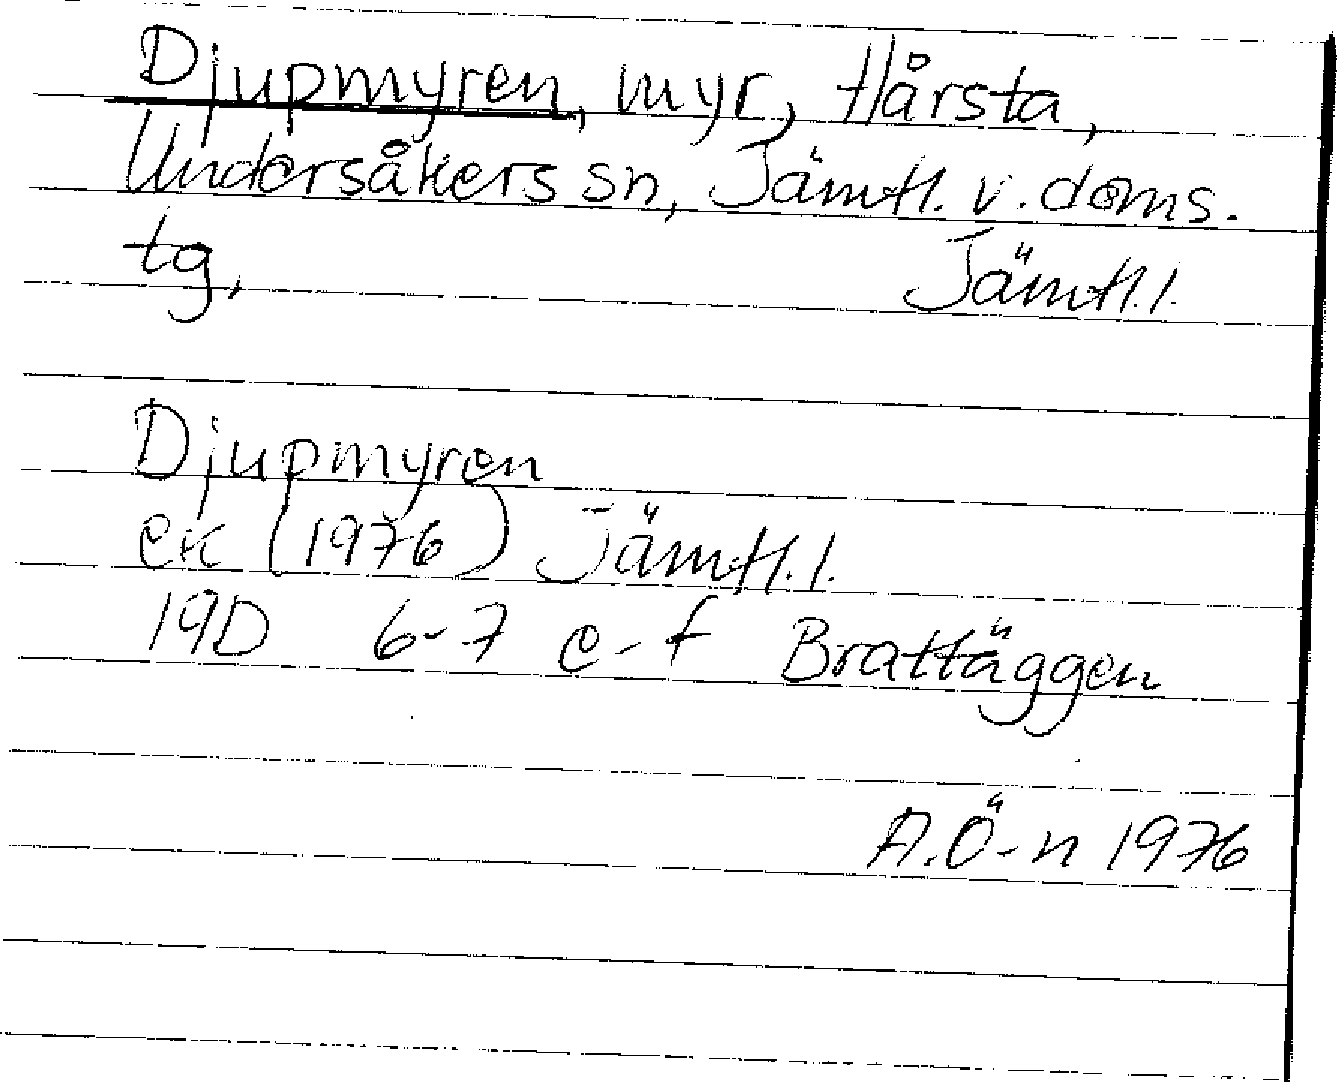 Djupmyren, myr, Hårsta,
Undersåkers sn, Jämtl. v. doms.
tg, Jämtl. l.
Djupmyren
ek (1976) Jämtl. l.
19D 6-7 e-f Brattäggen
A.Ö-n 1976